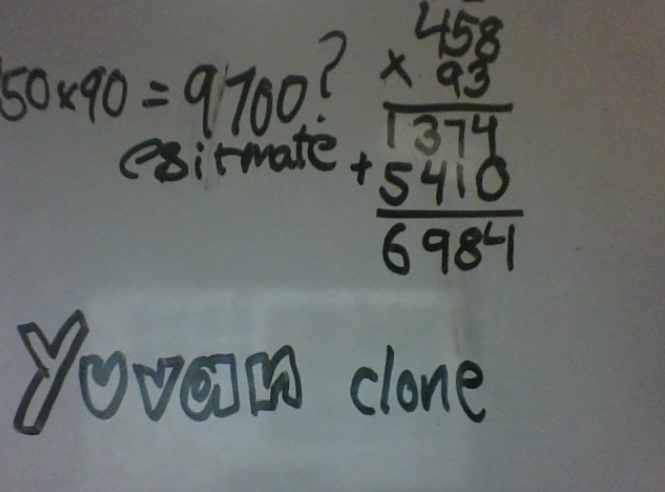 50x90 = 9700?
esitmate
458
x 93
1374
+ 5410
6984
Yuvan clone